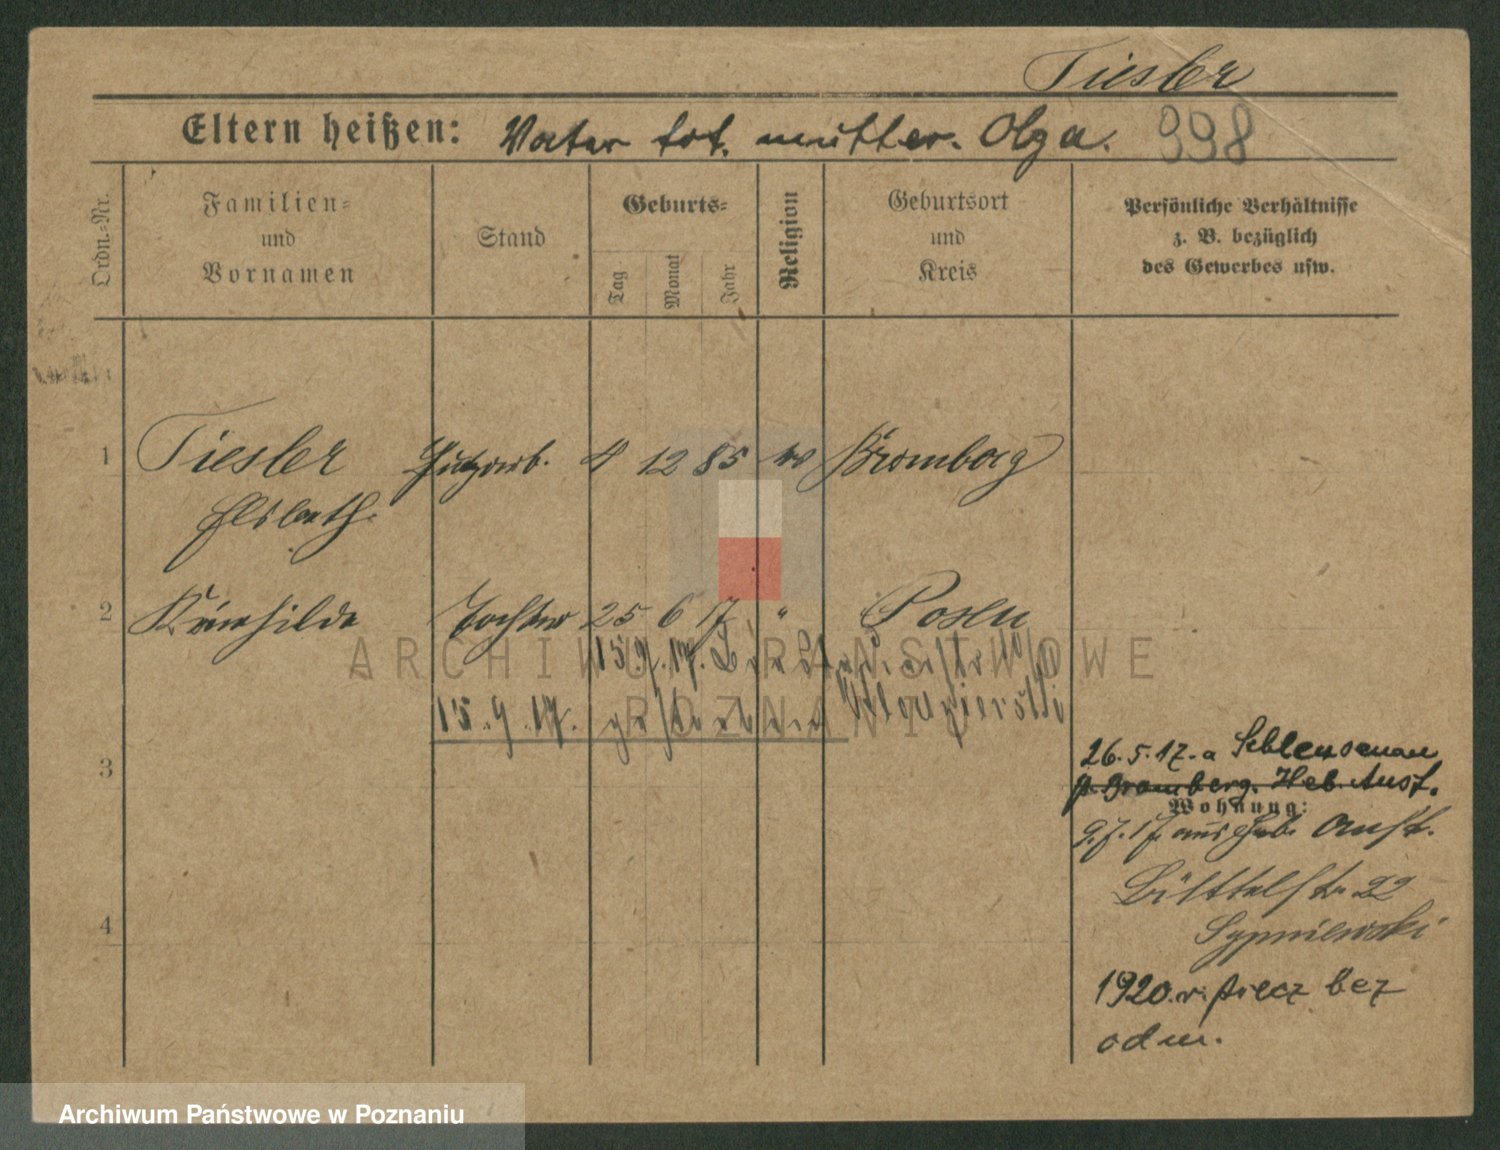 Tiesler
Eltern heißen: Vater tot. Mutter. Olga. 998
Ordn.-Nr.
Familien-
und
Vornamen
Stand
Geburts-
Tag
Monat
Jahr
Religion
Geburtsort
und
Kreis
Persönliche Verhältnisse
z. B. bezüglich
des Gewerbes usw.
1 Tiesler 4 12 85 Bromberg
Elsbeth
2 Krimhilde Tochter 25 6 17 " Posen
15.9.17.
15.9.17. gestorben
3
26.5.17. a Schleusenau
p. Bromberg. Heb. Anst.
Wohnung:
9.7.17. aus Heb. Anst.
22
Sypniewski
4
1920. r. bez
odm.
ARCHIWUM PAŃSTWOWE
POZNANIU
Archiwum Państwowe w Poznaniu